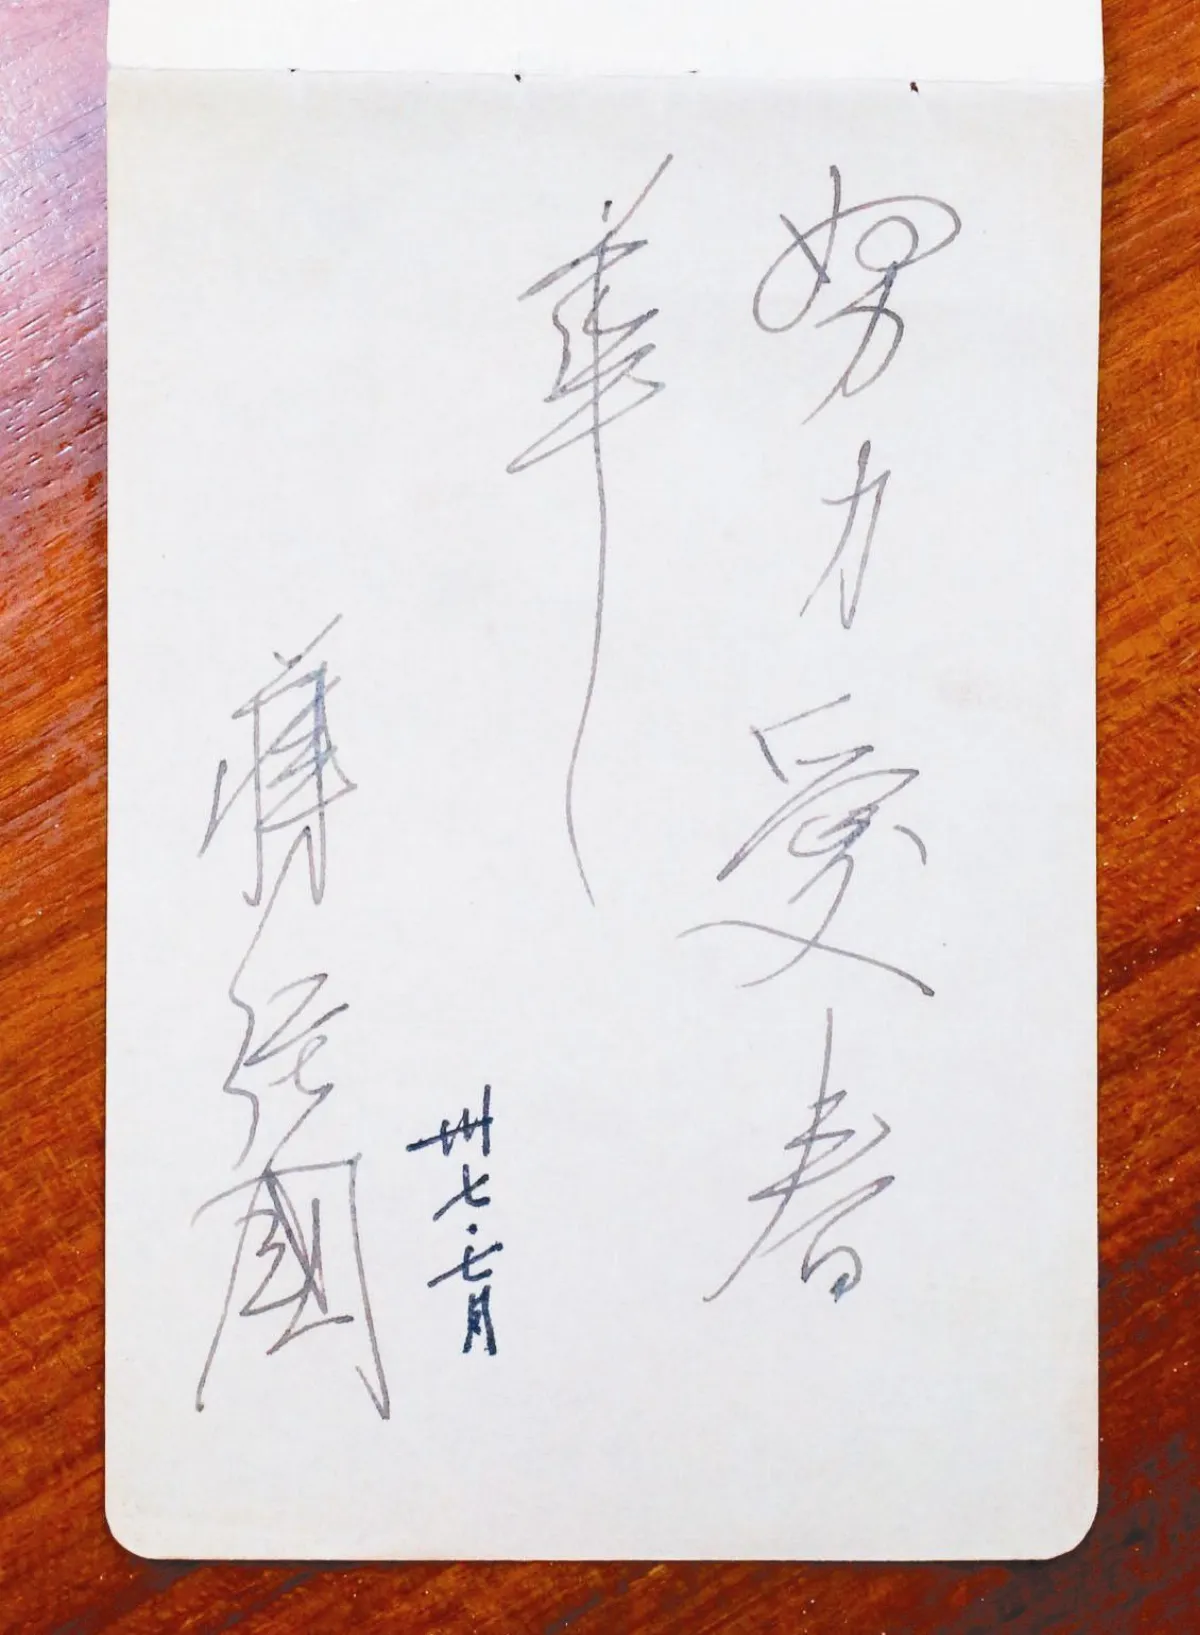 努力愛春
華
卅七.七月
蔣經國